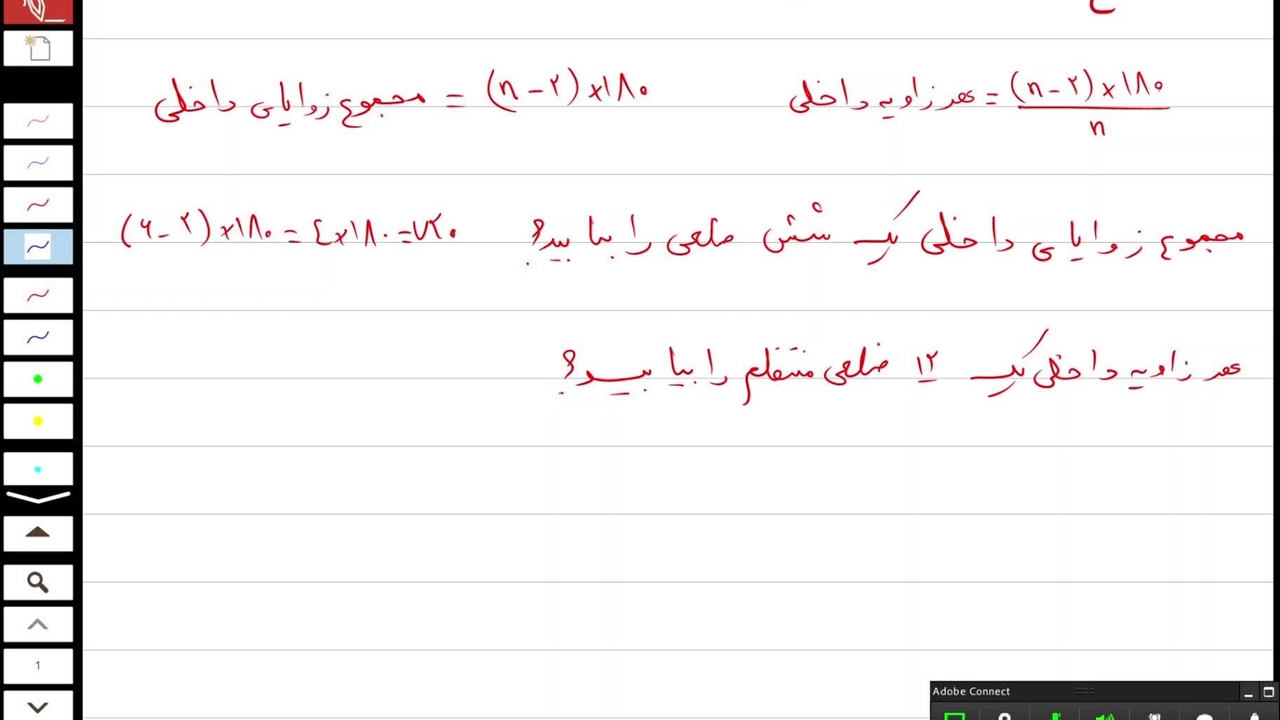 مجموع زوایای داخلی = (n-۲)×۱۸۰
هر زاویه داخلی = (n-۲)×۱۸۰ / n
مجموع زوایای داخلی یک شش ضلعی را بیابید؟ (۶-۲)×۱۸۰ = ٤×۱۸۰ = ۷۲۰
هر زاویه داخلی یک ۱۲ ضلعی منتظم را بیابید؟
1
Adobe Connect